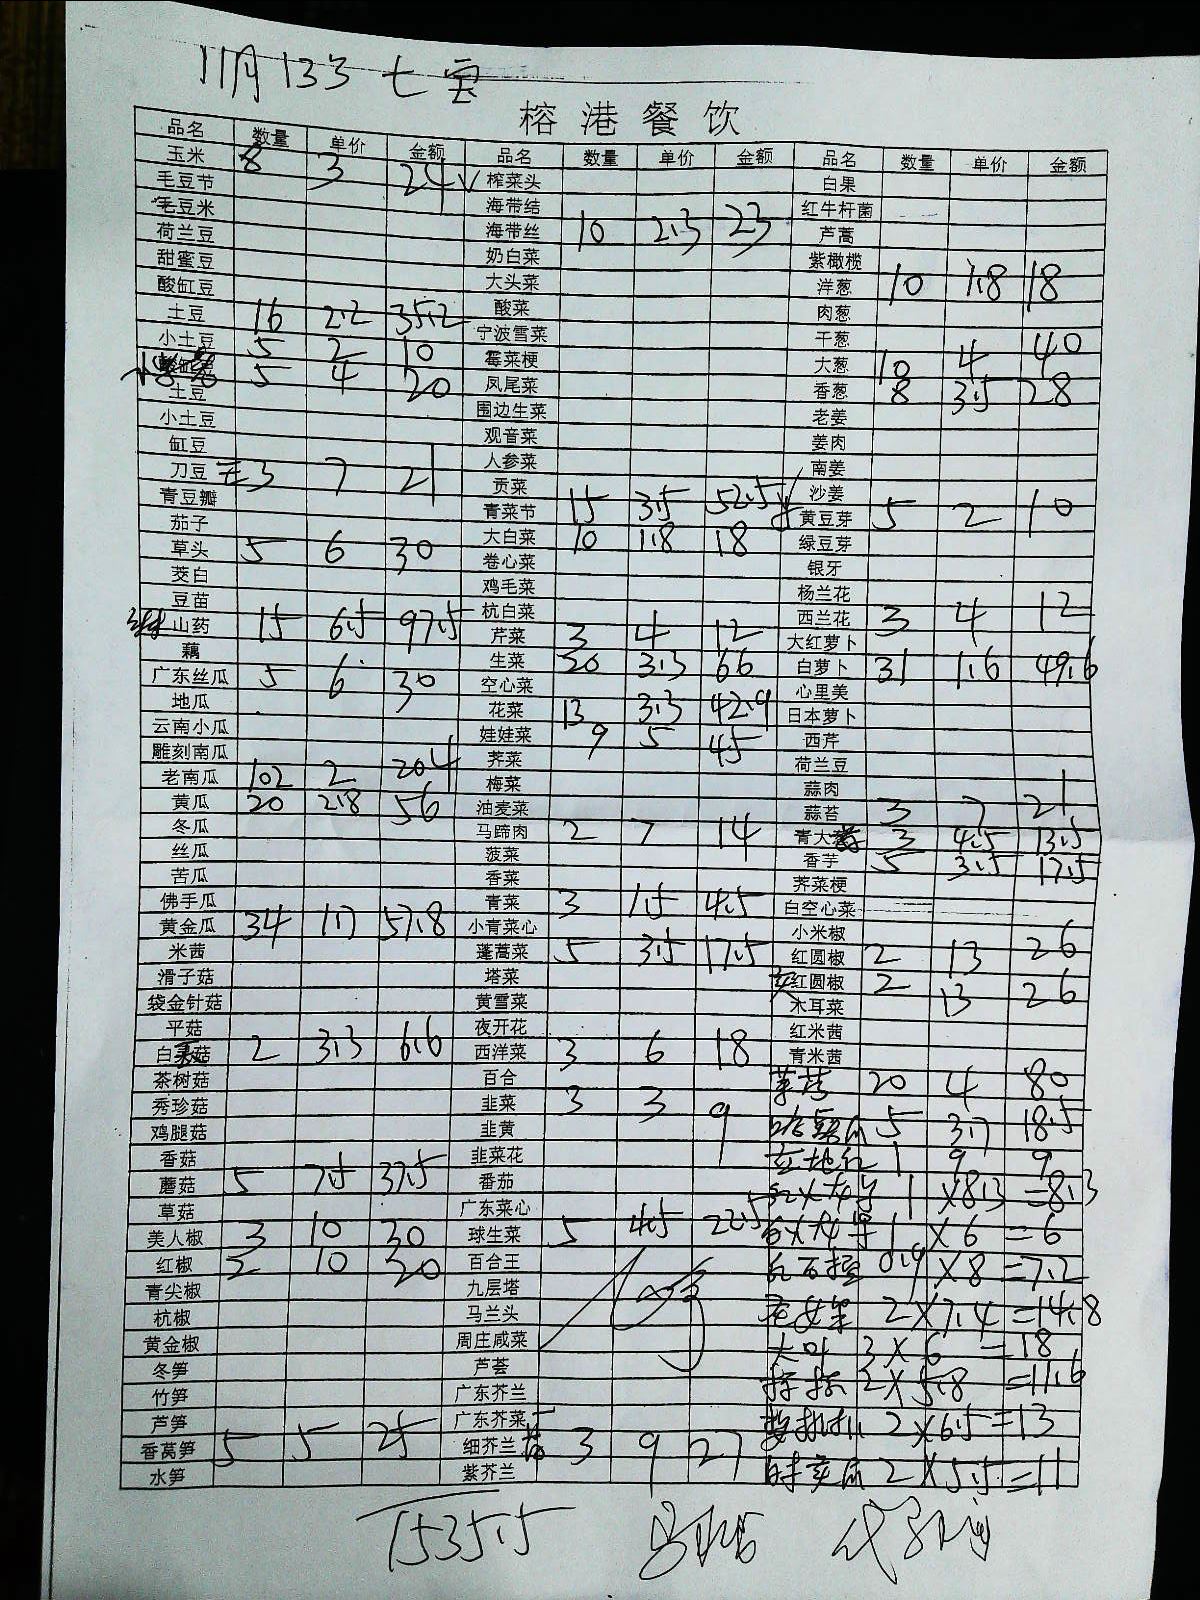 11月13号 七宝
榕港餐饮
品名 数量 单价 金额 品名 数量 单价 金额 品名 数量 单价 金额
玉米 8 3 24 榨菜头 白果
毛豆节 海带结 红牛杆菌
毛豆米 海带丝 10 2.3 23 芦蒿
荷兰豆 奶白菜 紫橄榄
甜蜜豆 大头菜 洋葱 10 1.8 18
酸缸豆 酸菜 肉葱
土豆 16 2.2 35.2 宁波雪菜 干葱 40
小土豆 5 2 10 霉菜梗 大葱 10 4
5 4 20 凤尾菜 香葱 8 3.5 28
土豆 围边生菜 老姜
小土豆 观音菜 姜肉
缸豆 人参菜 南姜
刀豆 3 7 21 贡菜 沙姜
青豆瓣 青菜节 15 3.5 52.5 黄豆芽 5 2 10
茄子 大白菜 10 1.8 18 绿豆芽
草头 5 6 30 卷心菜 银牙
茭白 鸡毛菜 杨兰花
豆苗 杭白菜 西兰花 3 4 12
山药 15 6.5 97.5 芹菜 3 4 12 大红萝卜
藕 生菜 20 3.3 66 白萝卜 31 1.6 49.6
广东丝瓜 5 6 30 空心菜 心里美
地瓜 花菜 13 3.3 42.9 日本萝卜
云南小瓜 娃娃菜 9 5 45 西芹
雕刻南瓜 荠菜 荷兰豆
老南瓜 102 2 204 梅菜 蒜肉
黄瓜 20 2.8 56 油麦菜 蒜苔 3 7 21
冬瓜 马蹄肉 2 7 14 青大蒜 3 4.5 13.5
丝瓜 菠菜 香芋 5 3.5 17.5
苦瓜 香菜 荠菜梗
佛手瓜 青菜 3 1.5 4.5 白空心菜
黄金瓜 34 1.7 57.8 小青菜心 小米椒
米茜 蓬蒿菜 5 3.5 17.5 红圆椒 2 13 26
滑子菇 塔菜 红圆椒 2 13 26
袋金针菇 黄雪菜 木耳菜
平菇 夜开花 红米茜
白菇 2 3.3 6.6 西洋菜 3 6 18 青米茜
茶树菇 百合 20 4 80
秀珍菇 韭菜 3 3 9 5 3.7 18.5
鸡腿菇 韭黄 1 9 9
香菇 韭菜花 红火龙果 1 ×8.3 =8.3
蘑菇 5 7.5 37.5 番茄 白火龙果 1 ×6 =6
草菇 广东菜心 0.9 ×8 =7.2
美人椒 3 10 30 球生菜 5 4.5 22.5 2×7.4 =14.8
红椒 2 10 20 百合王 大叶 3×6 =18
青尖椒 九层塔 2×5.8 =11.6
杭椒 马兰头 2×6.5 =13
黄金椒 周庄咸菜 2×5.5 =11
冬笋 芦荟
竹笋 广东芥兰
芦笋 广东芥菜
香莴笋 5 5 25 细芥兰 3 9 27
水笋 紫芥兰
1535.5